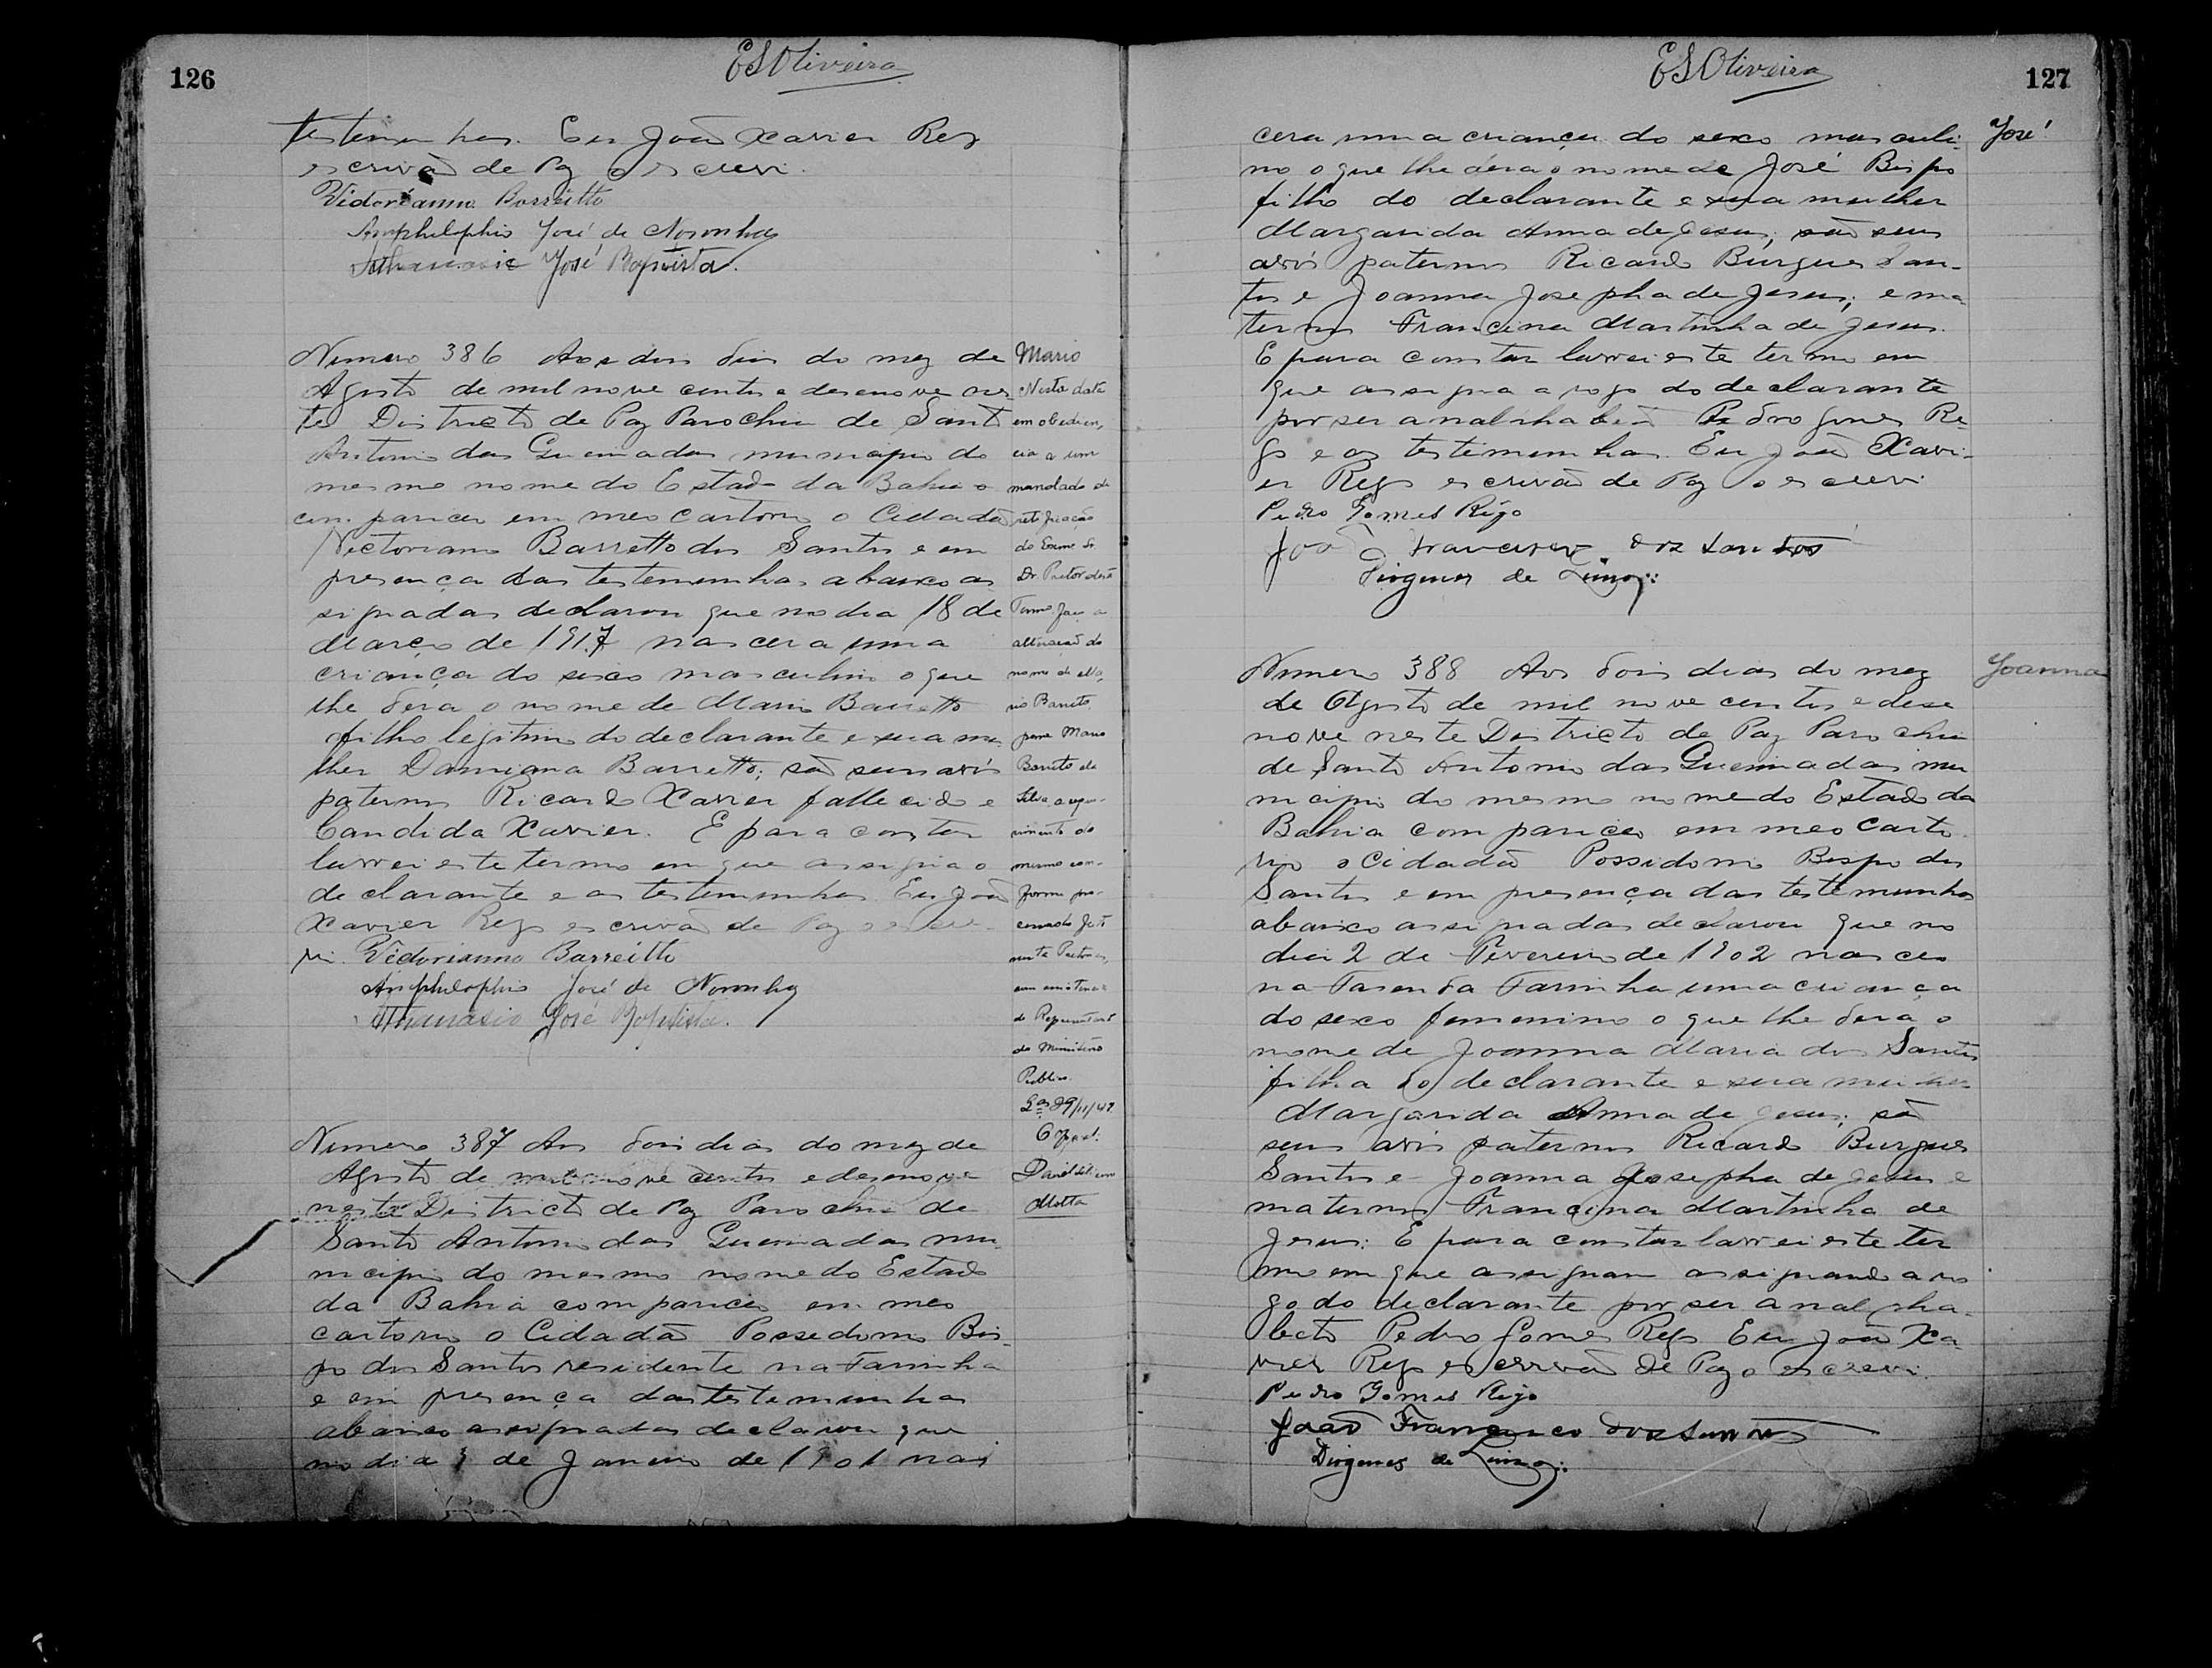 126
ESOliveira
testemunhas. Eu João Xavier Rego
escrivão de Paz o escrevi.
Victorianno Barreitto
Amphelophio José de Noronha
Athanasio José Baptista.
Numero 386 Aos dois dias do mez de
Agosto de mil nove centos e desenove nes
te Districto de Paz Parochia de Santo
Antonio das Queimadas municipio do
mesmo nome do Estado da Bahia
compareceu em meo cartorio o Cidadão
Victoriano Barretto dos Santos e em
presença das testemunhas abaixo as
signadas declarou que no dia 18 de
Março de 1917 nascera uma
criança do sexo masculino o que
lhe dera o nome de Mario Barretto
filho legitimo do declarante e sua mu
lher Damiana Barretto; são seus avós
paternos Ricardo Xavier fallecido e
Candida Xavier. E para constar
lavrei este termo em que assigna o
declarante e as testemunhas. Eu João
Xavier Rego escrivão de Paz o escre
vi. Victorianno Barreitto
Amphelophio José de Noronha
Athanasio José Baptista.
Mario
Nesta data
em obedien,
cia a um
mandado de
retificação
do Exmo Sr.
Dr. Pretor deste
Termo faço a
alteração do
nome de Ma,
rio Barreto,
para Mario
Barreto da
Silva a reque-
rimento do
mesmo con-
forme pro-
cessado
do Representante
do Ministerio
Publico.
Qas 29/11/47.
O Ofical:
Motta
Numero 387 Aos dois dias do mez de
Agosto de mil nove centos e desenove
neste Districto de Paz Parochia de
Santo Antonio das Queimadas mu
nicipio do mesmo nome do Estado
da Bahia compareceu em meo
cartorio o Cidadão Possedonio Bis
po dos Santos residente na Farinha
e em presença das testemunhas
abaixo assignadas declarou que
no dia 3 de Janeiro de 1901 nas
127
ESOliveira
cera uma criança do sexo masculi
no o que lhe dera o nome de José Bispo
filho do declarante e sua mulher
Margarida Anna de Jesus; são seus
avós paternos Ricardo Burgues San-
tos e Joanna Josepha de Jesus; e ma
ternos Francina Martinha de Jesus.
E para constar lavrei este termo em
que assigna a rogo do declarante
por ser analphabeto Pedro Gomes Re
go e as testemunhas. Eu João Xavi-
er Rego escrivão de Paz o escrevi.
Pedro Gomes Rêgo
João Francisco dos Santos
Diogenes de Lima
José
Numero 388 Aos dois dias do mez
de Agosto de mil nove centos e dese
nove neste Districto de Paz Parochia
de Santo Antonio das Queimadas mu
nicipio do mesmo nome do Estado da
Bahia compareceo em meo Carto
rio o Cidadão Possidonio Bispo dos
Santos e em presença das testemunhas
abaixo assignadas declarou que no
dia 2 de Fevereiro de 1902 nasceo
na Fasenda Farinha uma criança
do sexo femenino o que lhe dera o
nome de Joanna Maria dos Santos
filha do declarante e sua mulher
Margarida Anna de Jesus; são
seus avós paternos Ricardo Burgues
Santos e Joanna Josepha de Jesus e
maternos Francina Martinha de
Jesus: E para constar lavrei este ter
mo em que assignam assignando a ro
go do declarante por ser analpha-
beto Pedro Gomes Rego Eu João Xa
vier Rego escrivão de Paz o escrevi.
Pedro Gomes Rêgo
João Francisco dos Santos
Diogenes de Lima
Joanna